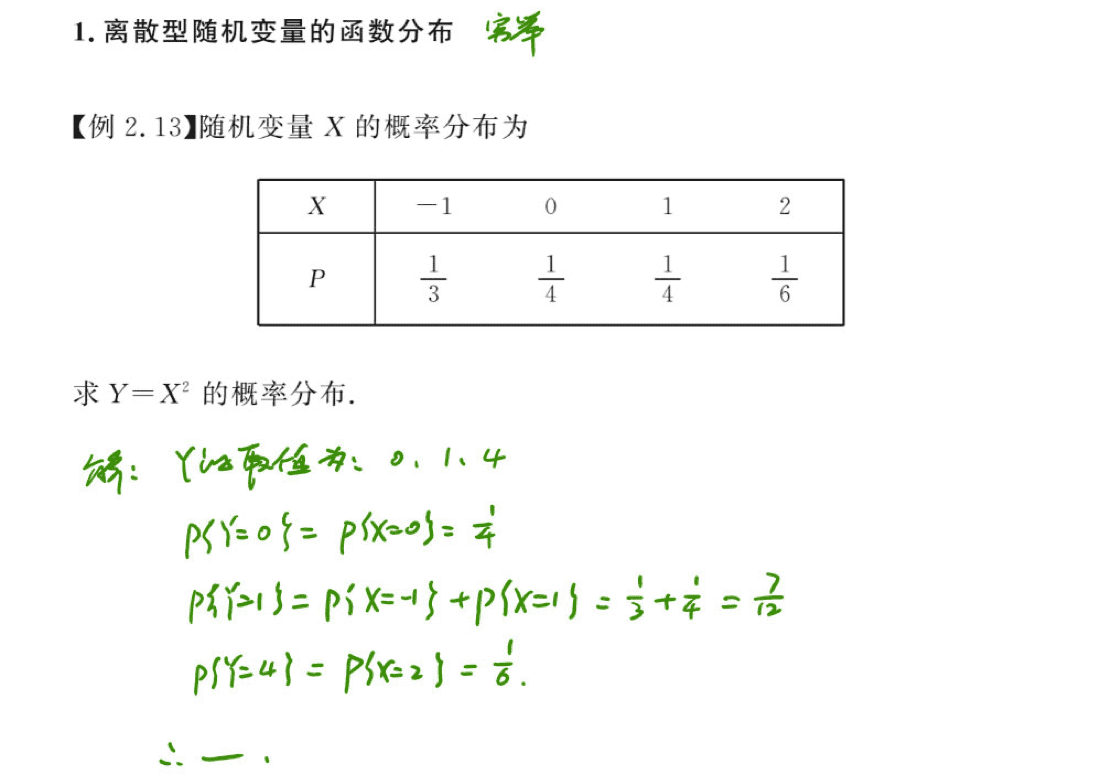 1. 离散型随机变量的函数分布 穷举
【例 2.13】随机变量 X 的概率分布为
X −1 0 1 2
P 1/3 1/4 1/4 1/6
求 Y=X² 的概率分布.
解: Y的取值为: 0、1、4
P{Y=0} = P{X=0} = 1/4
P{Y=1} = P{X=-1} + P{X=1} = 1/3 + 1/4 = 7/12
P{Y=4} = P{X=2} = 1/6.
∴ — .